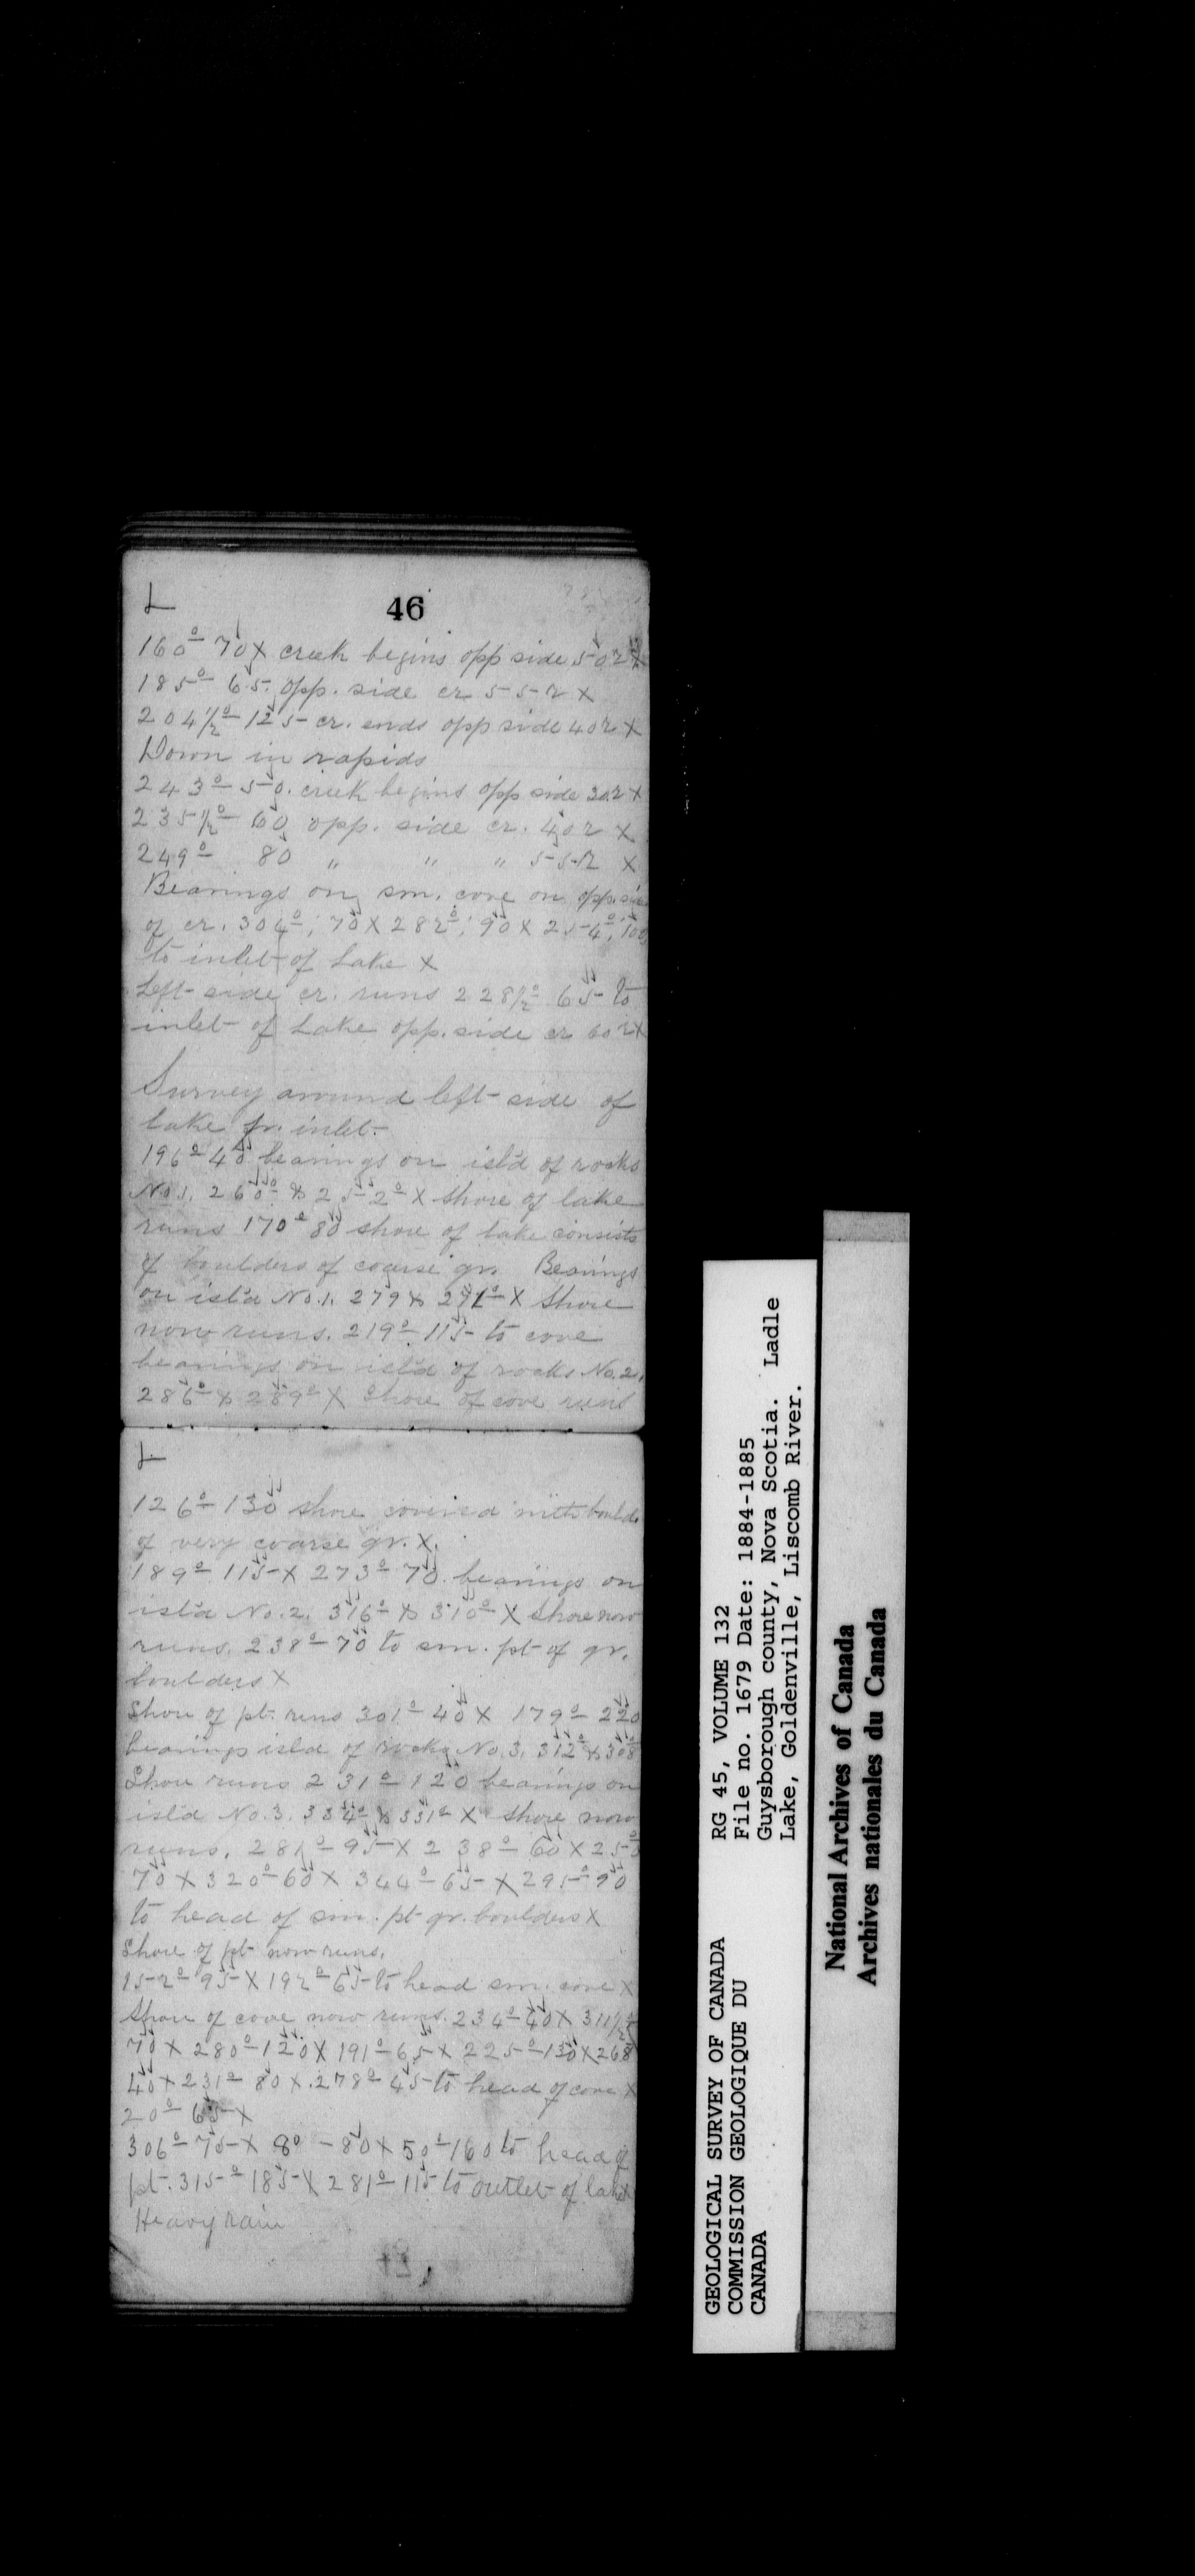 L
46
160° 70 X creek begins opp side 50 r X
185° 65. opp. side cr 55 r X
204 1/2° 125 cr. ends opp side 40 r X
Down in rapids
243° 50. creek begins opp side 30 r X
235 1/2° 60 opp. side cr. 40 r X
249° 80 " " " 55 r X
Bearings on sm. cove on opp. side
of cr. 304°; 70 X 282°; 90 X 254°; 100
to inlet of Lake X
Left side cr. runs 228 1/2° 65 to
inlet of Lake opp. side cr 60 r X
Survey around left side of
lake fr. inlet.
196° 40 bearings on isl'd of rocks
No. 1. 260° & 252° X Shore of lake
runs 170° 80 shore of lake consists
of boulders of coarse gr. Bearings
on isl'd No. 1. 279 & 271° X Shore
now runs. 219° 115 to cove
bearings on isl'd of rocks No. 2.
286° & 289° X Shore of cove runs
L
126° 130 shore covered with bould.
of very coarse gr. X.
189° 115 X 273° 70. bearings on
isl'd No. 2. 316° & 310° X Shore now
runs. 238° 70 to sm. pt of gr.
boulders X
Shore of pt. runs 301° 40 X 179° 220
bearings isl'd of rocks No. 3. 312° & 308°
Shore runs 231° 120 bearings on
isl'd No. 3. 334° & 331° X shore now
runs. 281° 95 X 238° 60 X 250
70 X 320° 60 X 344° 65 X 295° 90
to head of sm. pt gr. boulders X
Shore of pt now runs.
152° 95 X 192° 65 to head sm. cove X
Shore of cove now runs. 234° 40 X 311 1/2°
70 X 280° 120 X 191° 65 X 225° 130 X 268
40 X 231° 80 X 278° 45 to head of cove X
20° 65 X
306° 75 X 8° - 80 X 50° 160 to head of
pt. 315° 185 X 281° 115 to outlet of lake X
Heavy rain
GEOLOGICAL SURVEY OF CANADA
COMMISSION GEOLOGIQUE DU
CANADA
RG 45, VOLUME 132
File no. 1679 Date: 1884-1885
Guysborough county, Nova Scotia. Ladle
Lake, Goldenville, Liscomb River.
National Archives of Canada
Archives nationales du Canada